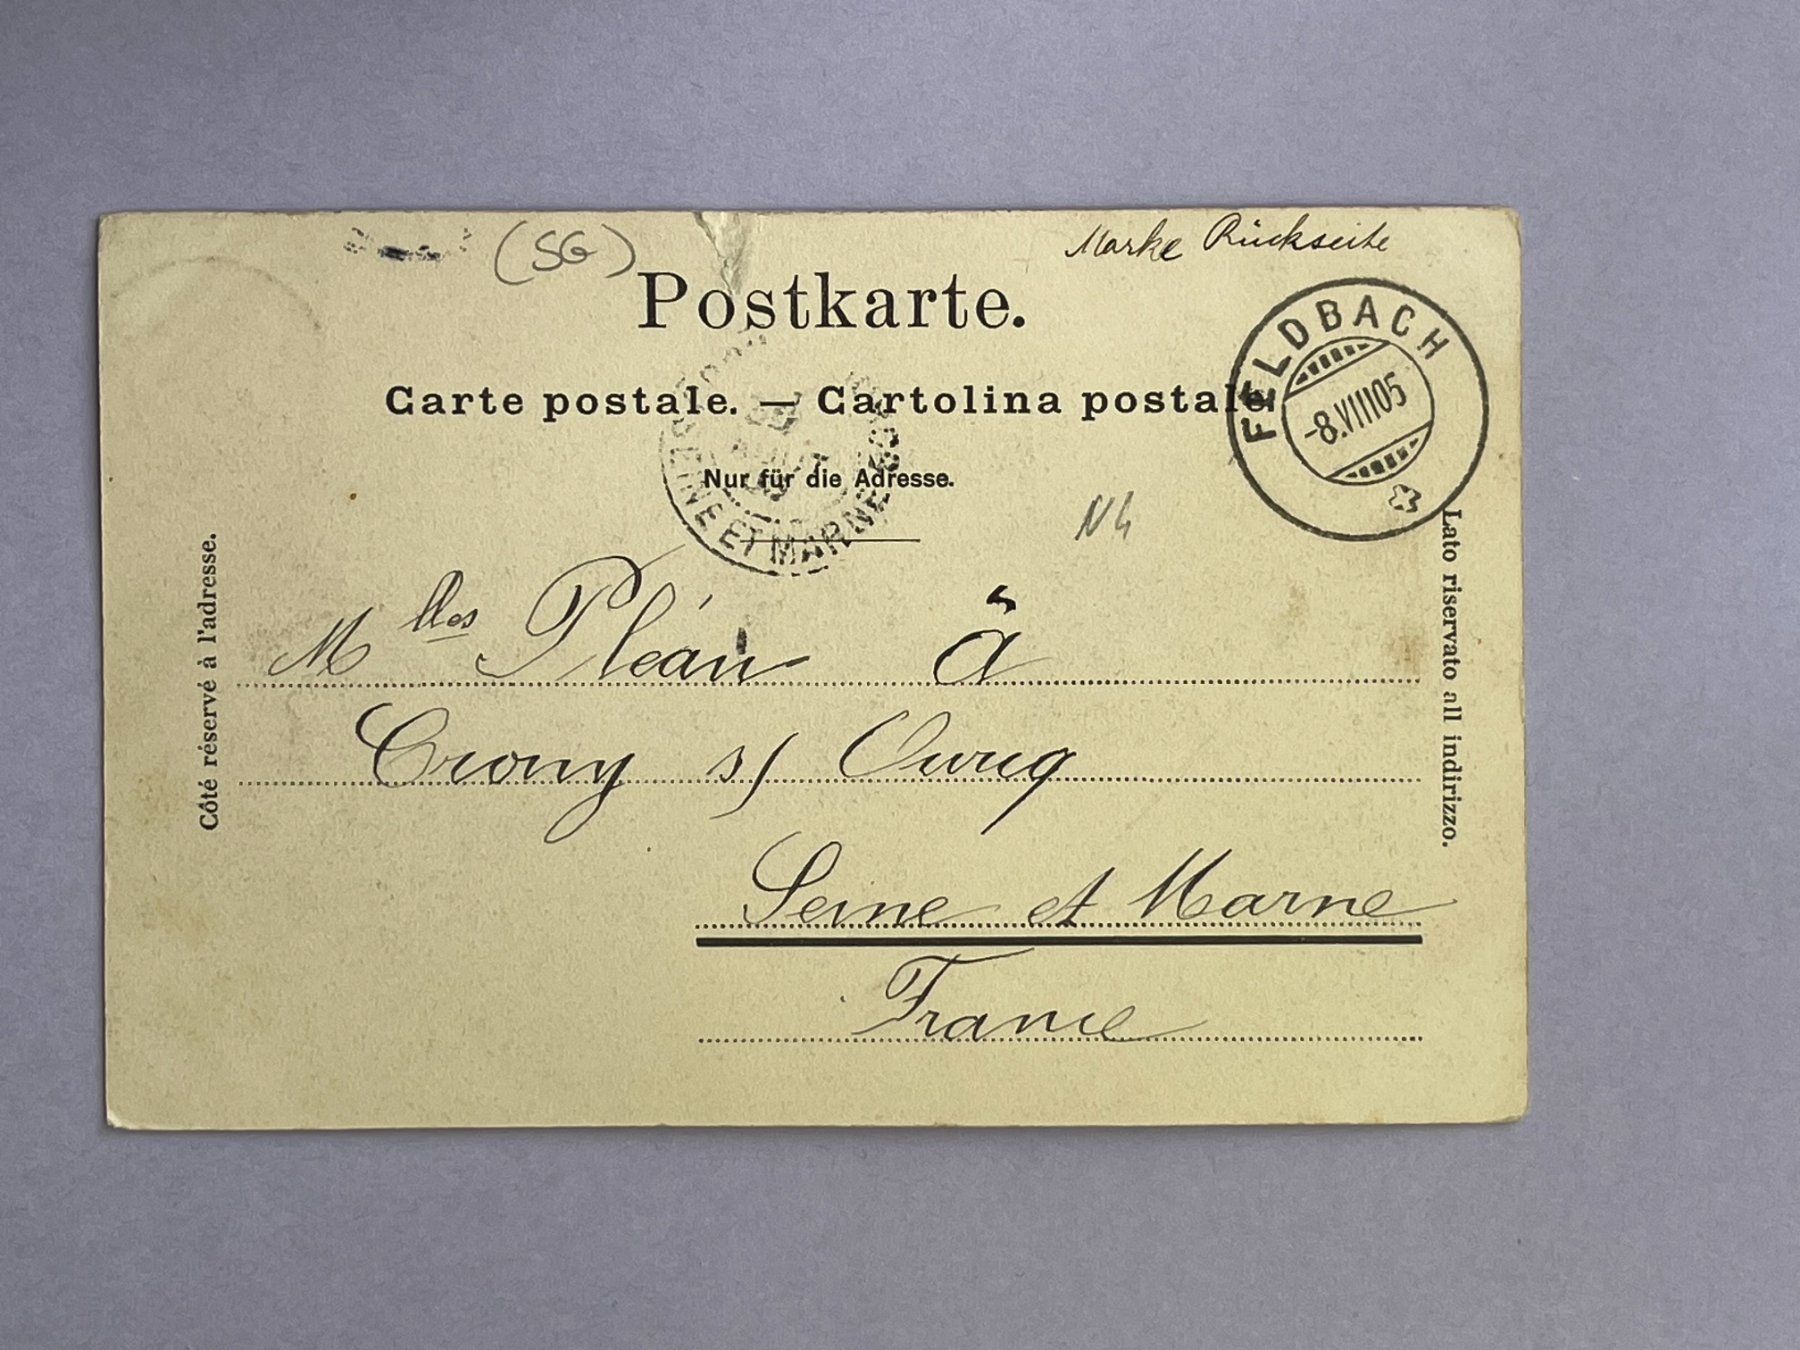 (SG)
Marke Rückseite
Postkarte.
Carte postale. — Cartolina postale.
FELDBACH
-8.VIII05
Nur für die Adresse.
SEINE ET MARNE
N4
Côté réservé à l'adresse.
Lato riservato all indirizzo.
Mlles Pléau à
Crouy s/ Ourcq
Seine et Marne
France